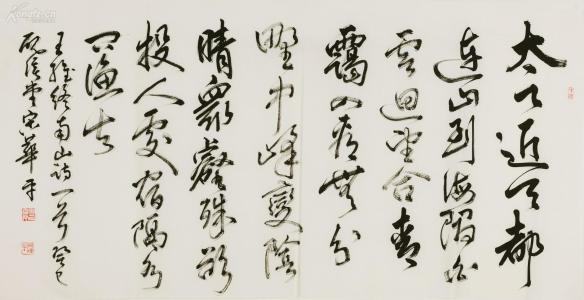 太乙近天都
連山到海隅白
雲迴望合青
靄入看無分
野中峰變陰
晴眾壑殊欲
投人處宿隔水
問漁夫
王維終南山詩一首癸巳
宋華平